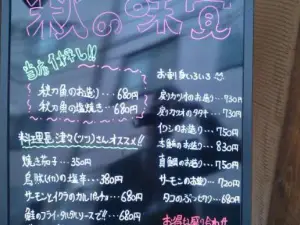 秋の味覚
当店イチ押し!!
秋の魚のお造り…680円
秋の魚の塩焼き…680円
料理長 オススメ!!
焼き茄子…350円
烏賊(イカ)の塩辛…380円
サーモンとイクラのカルパッチョ…680円
鮭のフライ・タルタルソースで!!…680円
お刺身いろいろ
戻りカツオのお造り…730円
戻りカツオのタタキ…730円
イワシのお造り…750円
本鮪のお造り…830円
真鯛のお造り…750円
サーモンのお造り…720円
タコのぶつ切り…680円
お得な盛り合わせ